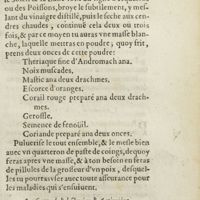 ou des Poissons, broye le subtilement, y mes-
lant du vinaigre distillé, puis le seche aux cen-
dres chaudes, continuë cela deux ou trois
fois, & par ce moyen tu auras vne masse blan-
che, laquelle mettras en poudre, quoy fait,
prens deux onces de cette poudre:
Theriaque fine d'Andromach ana.
Noix muscades,
Mastic ana deux drachmes.
Escorce d'oranges.
Corail rouge preparé ana deux drach-
mes.
Geroffle.
Semence de fenoüil.
Coriande preparé ana deux onces.
Puluerise le tout ensemble, & le mesle bien
auec vn quarteron de paste de coings, de quoy
feras apres vne masse, & à ton besoin en feras
de pillules de la grosseur d'vn pois, desquel-
les tu pourras vser auec toute asseurance pour
les maladies qui s'ensuiuent.